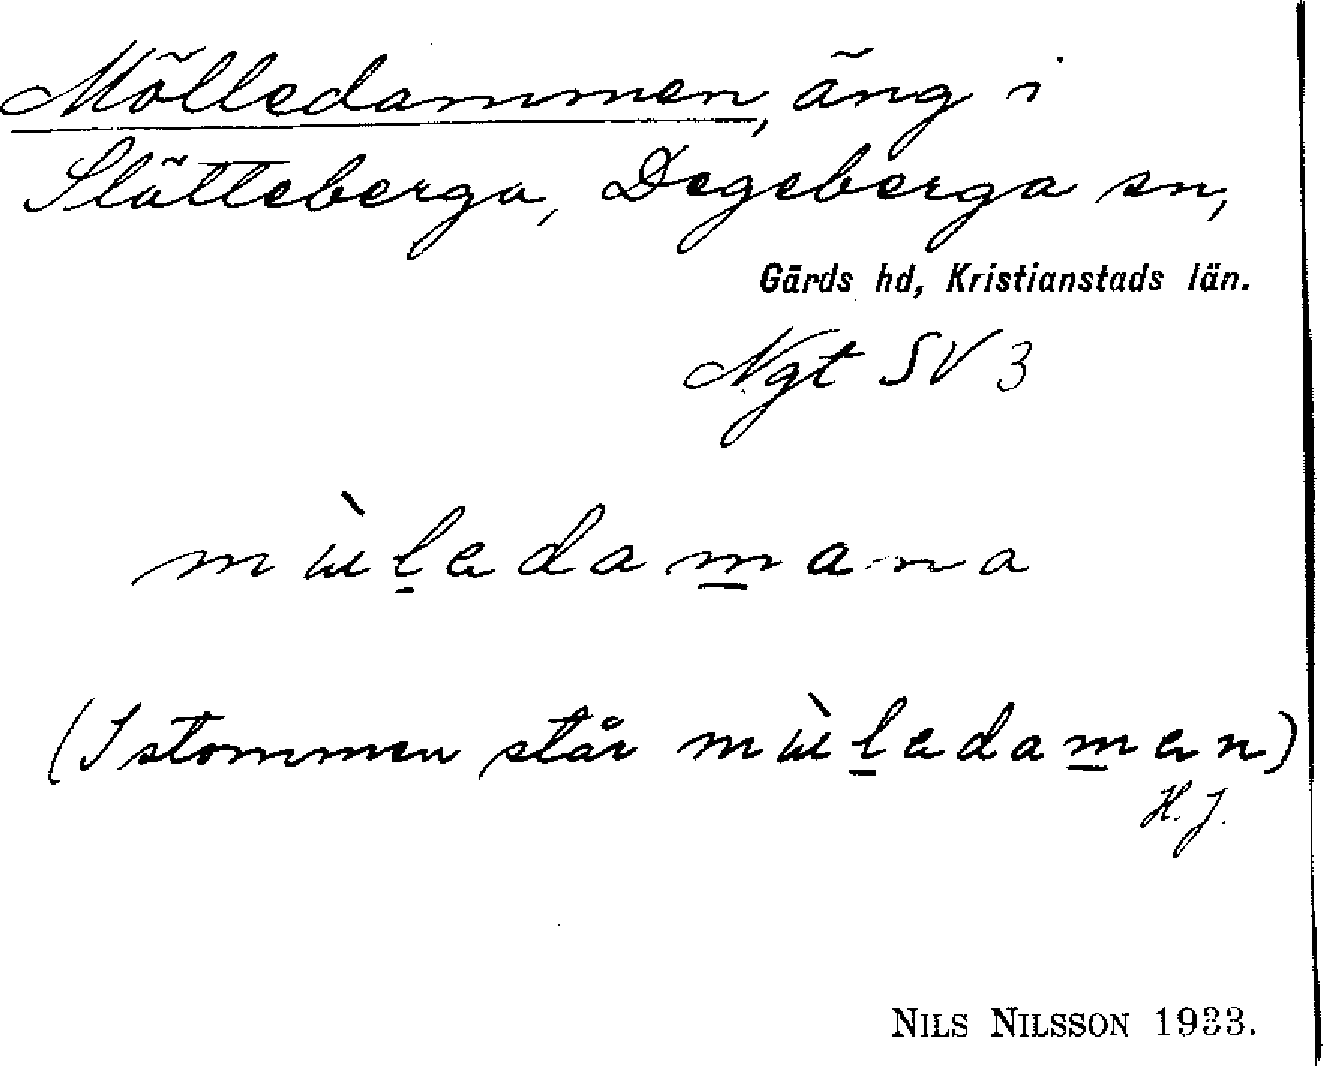 Mölledammen, äng i
Slätteberga, Degeberga sn,
Gärds hd, Kristianstads län.
Ngt SV 3
mɯ̀l̲ɐdam̲ana
(I stommen står mɯ̀l̲ɐdam̲ɐn)
H. J.
NILS NILSSON 1933.